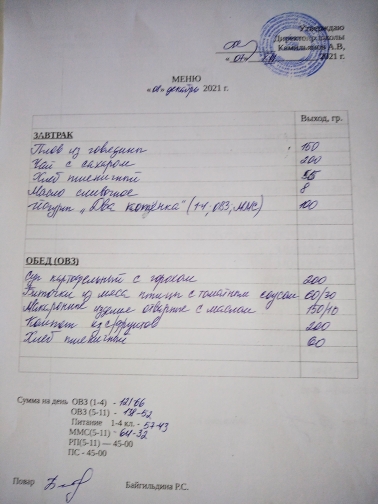 Утверждаю
Директор школы
Камильянов А.В,
2021 г.
МЕНЮ
«01» декабря 2021 г.
Выход, гр.
ЗАВТРАК
Плов из говядины 150
Чай с сахаром 200
Хлеб пшеничный
Масло сливочное 8
Йогурт „Два котёнка" (1-4, ОВЗ, ММС) 100
ОБЕД (ОВЗ)
Суп картофельный с горохом 200
Биточки из мяса птицы с томатном соусом 60/30
Макаронные изделие отварные с маслом 150/10
Компот из с/фруктов 200
Хлеб пшеничный 60
Сумма на день ОВЗ (1-4) - 121-66
ОВЗ (5-11) - 138-52
Питание 1-4 кл. - 57-43
ММС(5-11) - 64-32
РП(5-11) — 45-00
ПС - 45-00
Повар Байгильдина Р.С.